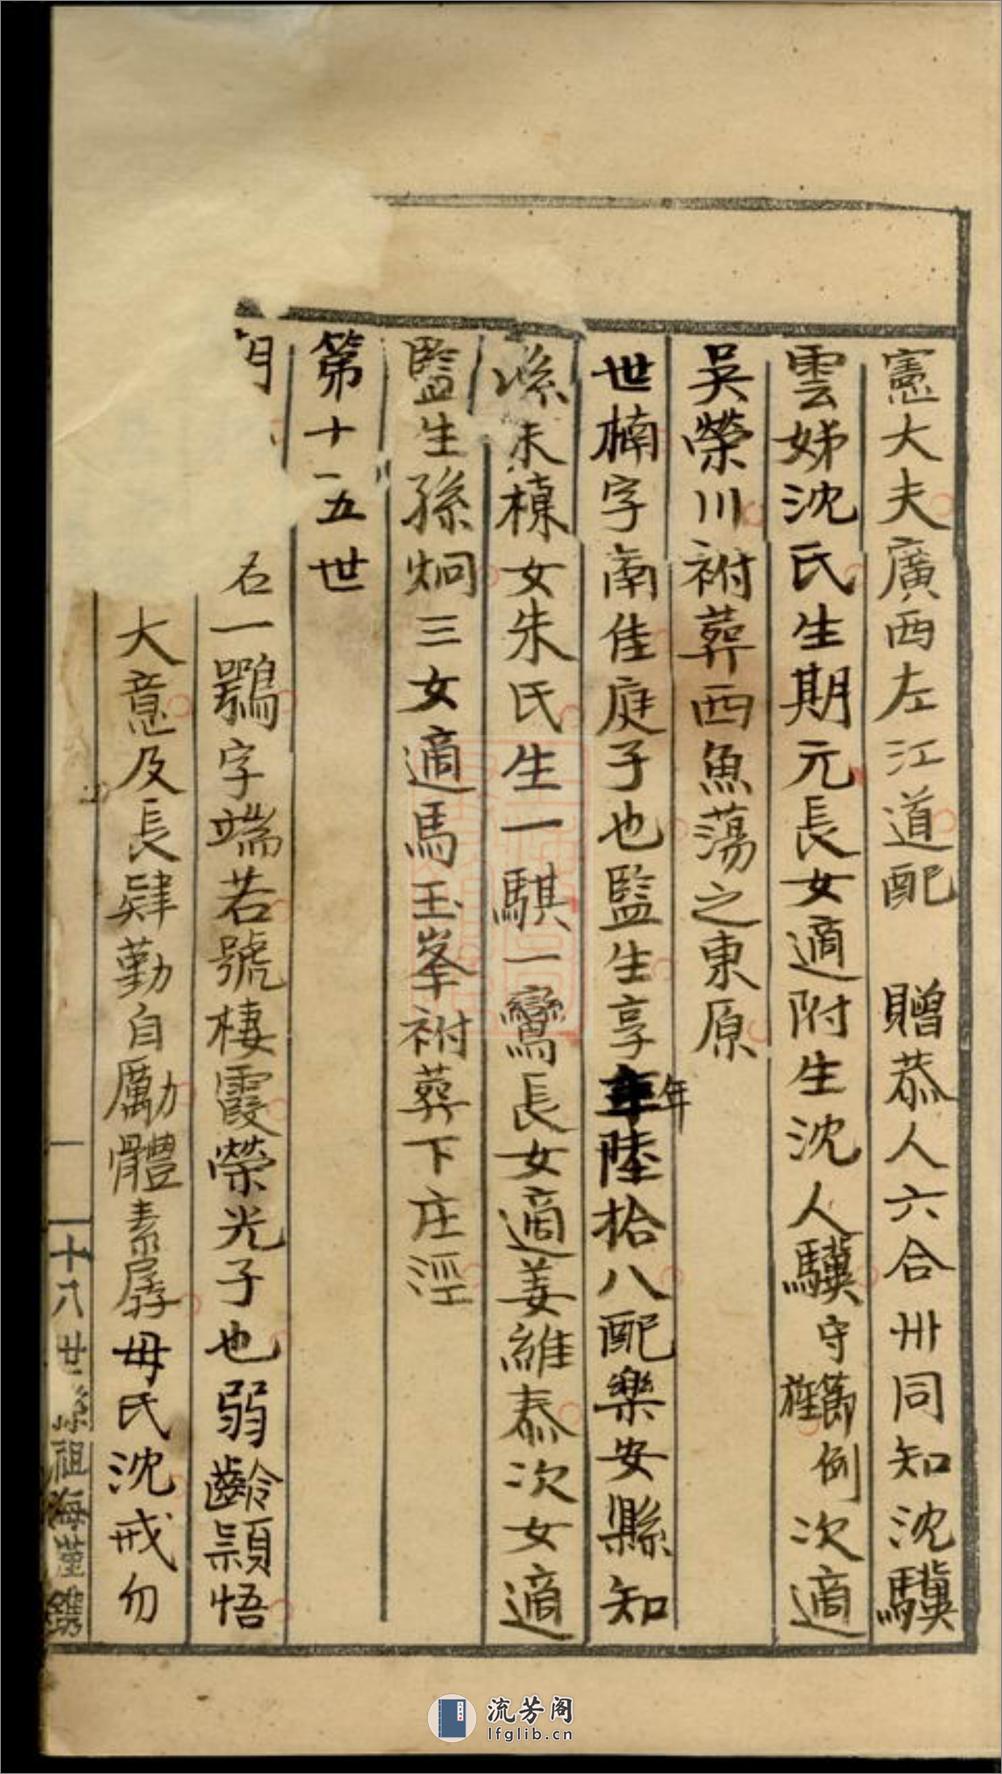 憲大夫廣西左江道配 贈恭人六合卅同知沈驥
雲姊沈氏生期元長女適附生沈人驥守節旌例次適
吳榮川祔葬西魚蕩之東原
世楠字南佳庭子也監生享年陸拾八配樂安縣知
朱模女朱氏生一騏一鸞長女適姜維泰次女適
監生孫炯三女適馬玉峯祔葬下庄涇
第十五世
一鶚字端若號棲霞榮光子也弱齡穎悟
大意及長肆勤自勵體素孱母氏沈戒勿
十八世孫祖海謹鐫
流芳阁
lfglib.cn